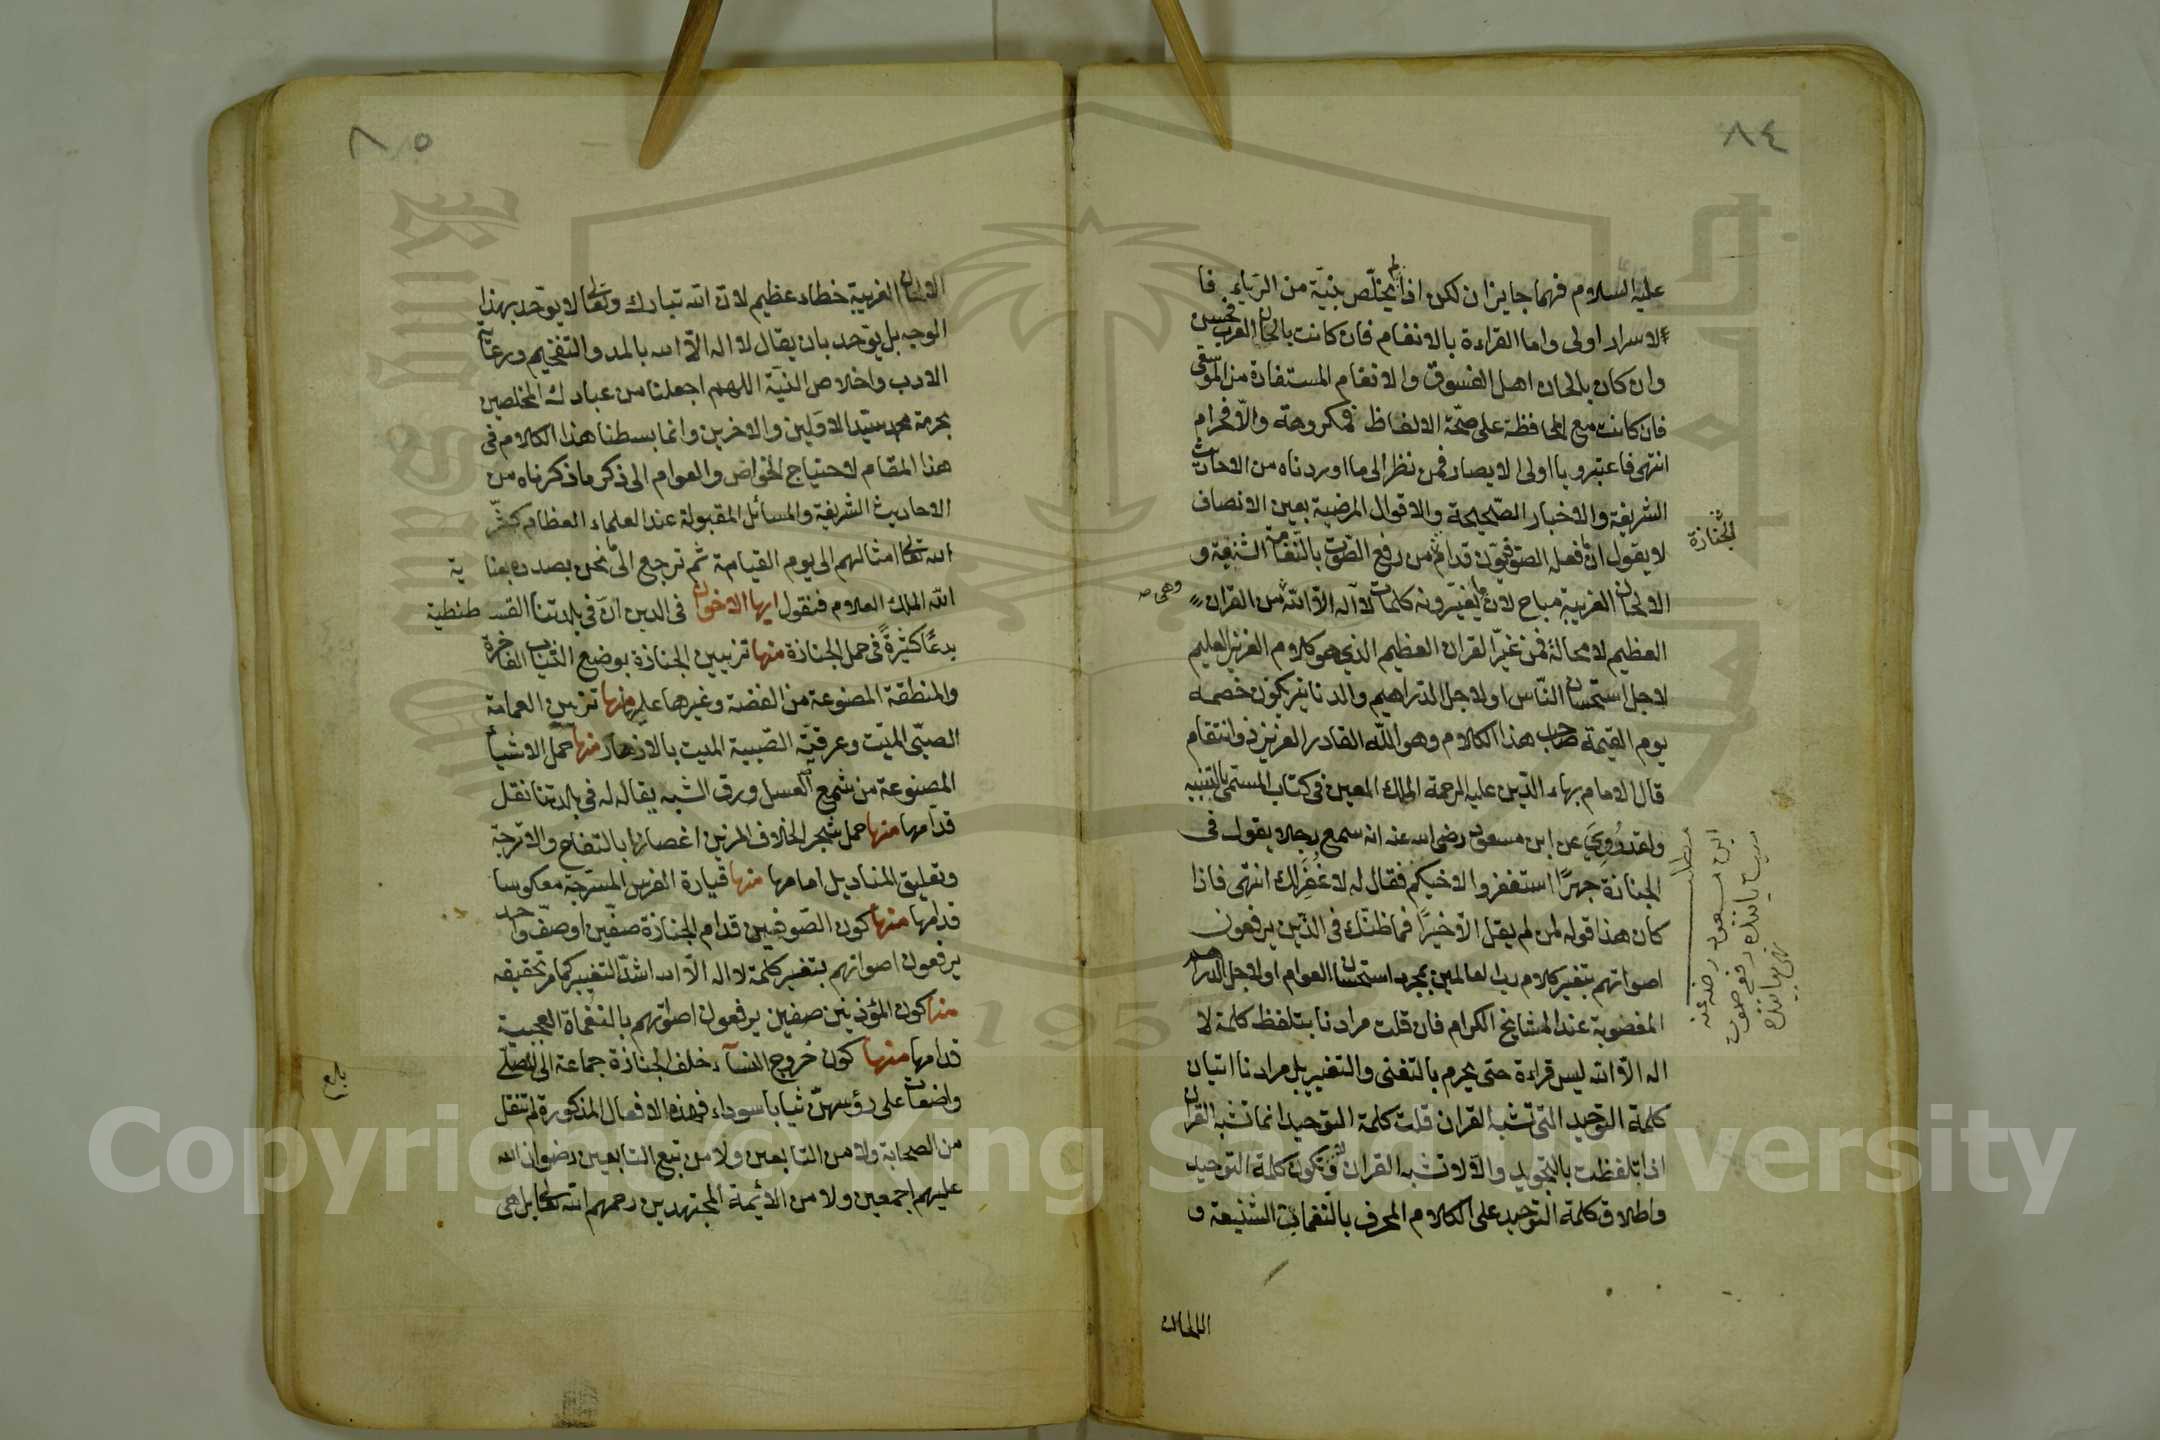 ٨٤
عليه السلام فهما جايزان لكن اذا لم يخلص بنية من الرياء فا
لاسرار اولى واما القراءة بالانغام فان كانت بالحان العرب فحسن
وان كان بالحان اهل الفسوق والانغام المستفادة من الموسقى
فان كانت مع المحافظة على صحة الالفاظ فمكروهة والا فحرام
انتهى فاعتبروا يا اولى الابصار فمن نظر الى ما اوردناه من الاحاديث
الشريفة والاخبار الصحيحة والاقوال المرضية بعين الانصاف
لا يقول ان ما فعله الصوفيون قدام من رفع الصوت بالنغمات الشنيعة و
الجنازة
الالحان الغريبة مباح لانهم يغيرونه كلمات لا اله الا الله من القران
وهى
العظيم لا محالة فمن غير القران العظيم الذي هو كلام العزيز العليم
لاجل استحسان الناس او لاجل الدراهيم والدنانير يكون خصمه
يوم القيمة صاحب هذا الكلام وهو الله القادر العزيز ذو انتقام
قال الامام بهاء الدين عليه الرحمة الملك المعين فى كتاب المسمى بالتنبيه
ولقد رُوِيَ عن ابن مسعود رضى الله عنه انه سمع رجلا يقول فى
الجنازة جهرًا استغفروا لاخيكم فقال له لا غُفِرَ لك انتهى فاذا
كان هذا قوله لمن لم يقل الا خيرًا فما ظنك فى الذين يرفعون
اصواتهم بتغير كلام رب العالمين بمجرد استحسان العوام او لاجل الدراهم
المغصوبة عند المشايخ الكرام فان قلت مرادنا بتلفظ كلمة لا
اله الا الله ليس قراءة حتى يحرم بالتغنى والتغيير بل مرادنا اتيان
كلمة التوحيد التى تشبه القران قلت كلمة التوحيد انما تشبه القران
اذا تلفظت بالتجويد والا لا تشبه القران فتكون كلمة التوحيد
واطلاق كلمة التوحيد على الكلام المحرف بالنغمات الشنيعة و
ابن مسعود رضى عنه
الالحان
٨٥
الالحان الغريبة خطاء عظيم لان الله تبارك وتعالى لا يوحد بهذا
الوجه بل يوحد بان يقال لا اله الا الله بالمد والتفخيم ورعاية
الادب واخلاص النية اللهم اجعلنا من عبادك المخلصين
بحرمة محمد سيد الاولين والاخرين وانما بسطنا هذا الكلام فى
هذا المقام لاحتياج الخواص والعوام الى ذكر ما ذكرناه من
الاحاديث الشريفة والمسائل المقبولة عند العلماء العظام كثر
الله تعالى امثالهم الى يوم القيامة ثم ترجع الى ما نحن بصدده بعناية
الله الملك العلام فنقول ايها الاخوان فى الدين ان فى بلدتنا القسطنطنية
بدعًا كثيرةً فى حمل الجنازة منها تزيين الجنازة بوضع الثياب الفاخرة
والمنطقة المصنوعة من الفضة وغيرها عليها منها تزيين العمامة
الصبى الميت وعرقية الصبية الميت بالازهار منها حمل الاشياء
المصنوعة من شمع العسل وورق الشبه يقال له فى بلدتنا نقل
قدامها منها حمل شجر الخلاف المزين اغصانها بالتفاح والاترجة
وتعليق المناديل امامها منها قيادة الفرس المسرجة معكوسا
قدامها منها كون الصوفيين قدام الجنازة صفين او صف واحد
يرفعون اصواتهم بتغير كلمة لا اله الا الله اشد التغيير كما مر تحقيقه
منها كون المؤذنين صفين يرفعون اصواتهم بالنغماة العجيبة
قدامها منها كون خروج النساء خلف الجنازة جماعة الى المصلى
واضعات على رؤسهن ثيابا سوداء فهذه الافعال المذكورة لم تنقل
من الصحابة ولا من التابعين ولا من تبع التابعين رضوان الله
عليهم اجمعين ولا من الائمة المجتهدين رحمهم الله تعالى بل هى
بلغ
Copyright © King Saud University
1957